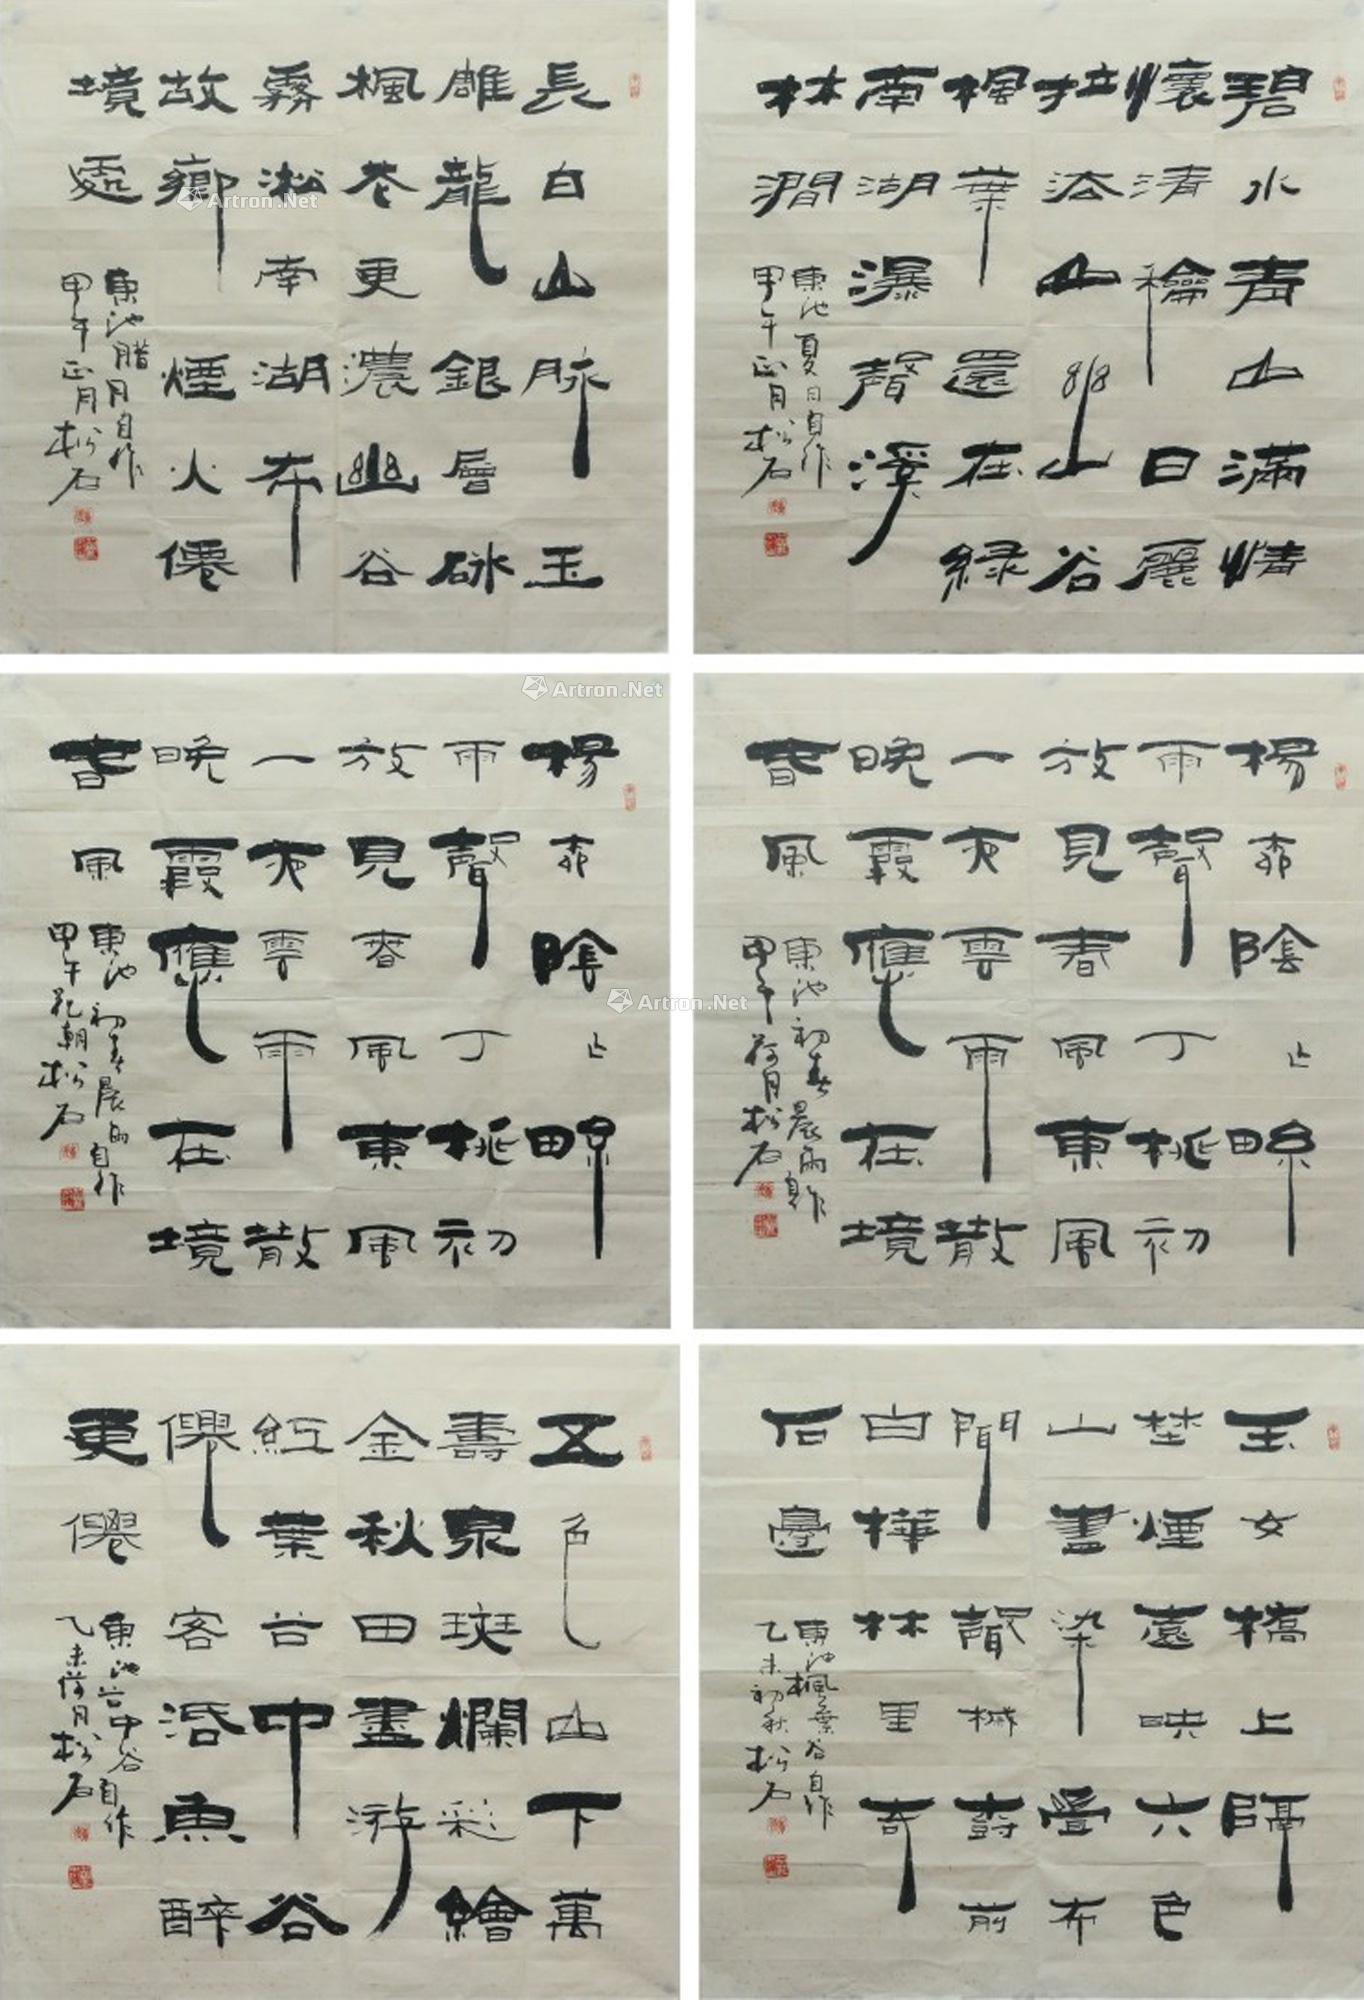 長白山脉玉
雕龍銀層
楓花更濃幽谷
霧淞南湖布
故鄉煙火僊
境處
東池腊月自作
甲午正月松石
Artron.Net
碧水青山滿情
懷清穐日麗
拉法山幽山谷
楓葉還在緑
南湖瀑聲溪
林澗
東池夏日自作
甲午正月松石
楊陰
雨聲丁桃初
放見春風東風
一夜雲雨散
晚霞應在境
春風
東池初春晨雨自作
甲午花朝松石
Artron.Net
楊陰
雨聲丁桃初
放見春風東風
一夜雲雨散
晚霞應在境
春風
東池初春晨雨自作
甲午荷月松石
Artron.Net
五色山下萬
壽泉斑斕彩繪
金秋田畫游
紅葉谷中谷
僊客活魚醉
更僊
東池谷中谷自作
乙未荷月松石
玉女橋上隔
埜煙遠映六色
山畫染疊布
聞聲械壽前
白樺林里奇
石邊
東池楓葉谷自作
乙未初秋松石